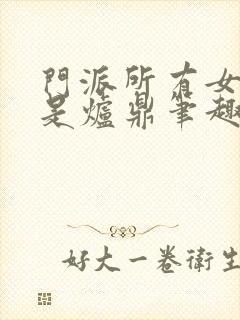 門派所有女
是爐鼎筆趣
好大一卷衛生